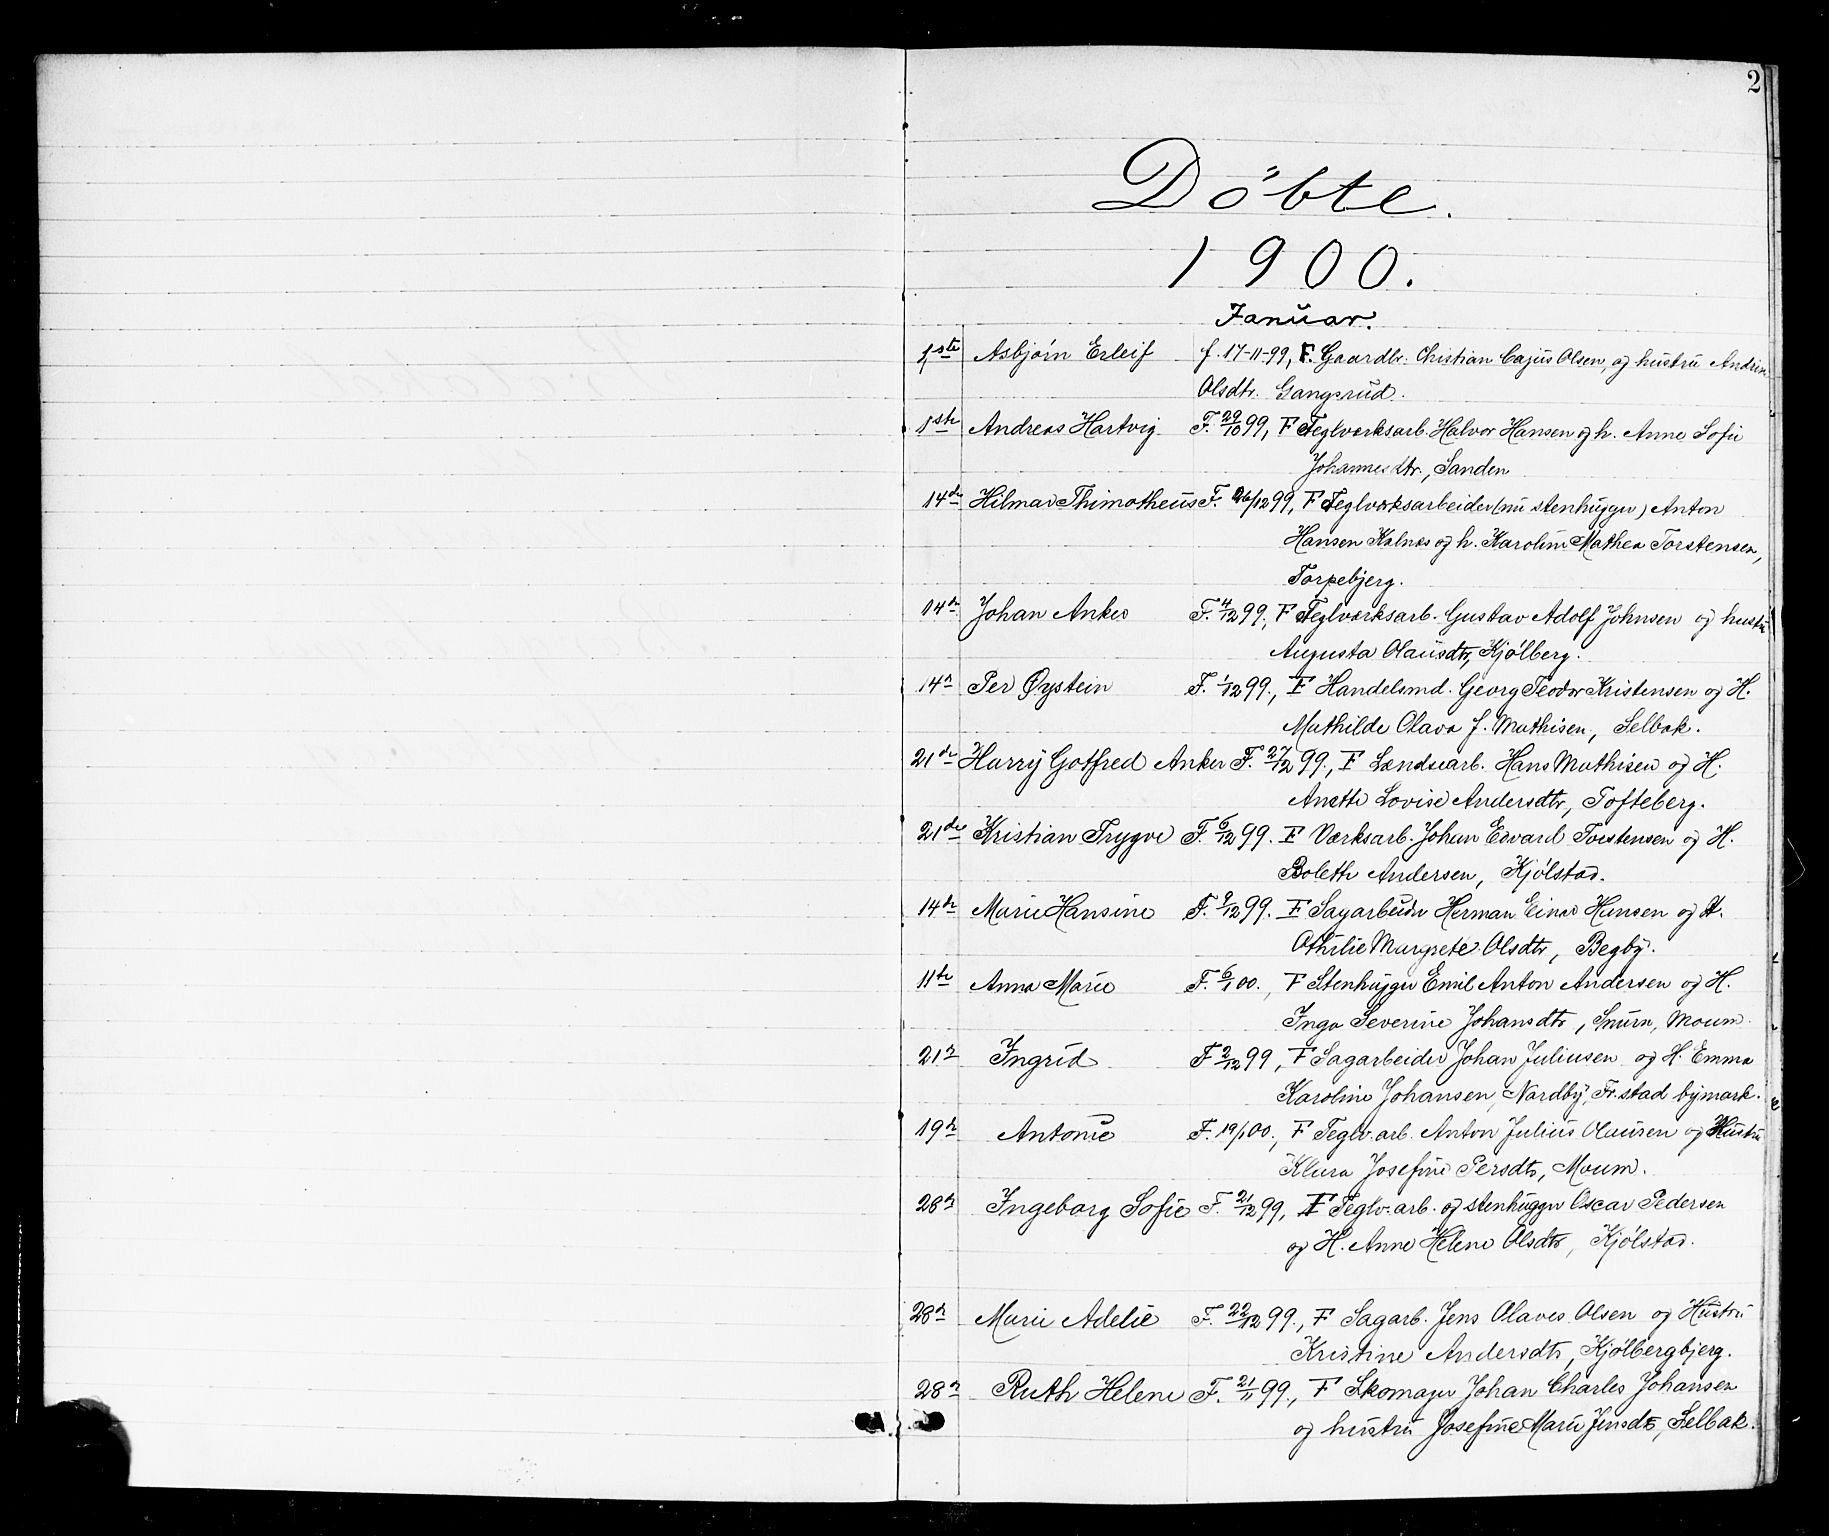 2
Döbte.
1900.
Januar.
1ste Asbjørn Erleif f. 17-11-99, F. Gaardbr. Christian Cajus Olsen, og hustru Andrine
Olsdtr. Gangsrud.
1ste Andreas Hartvig F. 29/10 99, F Teglværksarb. Halvor Hansen og h. Anne Sofie
Johannesdtr., Sanden
14de Hilmar Thimotheus F. 26/12 99, F Teglværksarbeider (nu stenhugger) Anton
Hansen Kalnæs og h. Karoline Mathea Torstensen,
Torpebjerg.
14de Johan Anker F. 4/12 99., F Teglværksarb. Gustav Adolf Johnsen og hustru
Augusta Olausdtr, Kjølberg.
14n Per Øystein F. 1/12 99., F Handelsmd. Georg Teodor Kristensen og H.
Mathilde Olava f. Mathisen, Selbak.
21de Harry Gotfred Anker F. 27/12 99., F Lændsearb. Hans Mathisen og H.
Anette Lovise Andersdtr, Tofteberg.
21de Kristian Trygve F. 6/12 99. F Værksarb. Johan Edvard Torstensen og H.
Bolette Andersen, Kjølstad.
14de Marie Hansine F. 9/12 99. F Sagarbeider Herman Einar Hansen og H.
Othilie Margrete Olsdtr, Begby.
11te Anna Marie F. 6/1 00., F Stenhugger Emil Anton Andersen og H.
Inga Severine Johansdtr, Moum.
21n Ingrid F 2/12 99, F Sagarbeider Johan Juliusen og H. Emma
Karoline Johansen, Nordby, Fr.stad bymark.
19n Antonie F. 19/1 00., F Teglv.arb. Anton Julius Olausen og Hustru
Klara Josefine Persdtr, Moum.
28n Ingeborg Sofie F. 21/12 99, F Teglv.arb. og stenhugger Oscar Pedersen
og H. Anne Helene Olsdtr, Kjølstad.
28n Marie Adelie F. 22/12 99., F Sagarb. Jens Olaves Olsen og Hustru
Kristine Andersdtr, Kjølbergbjerg.
28n Ruth Helene F. 21/11 99., F Skomager Johan Charles Johansen
og hustru Josefine Marie Jensdtr, Selbak.